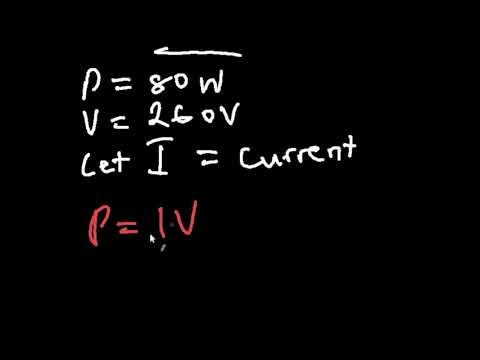 P = 80W
V = 260V
Let I = current
P = I.V